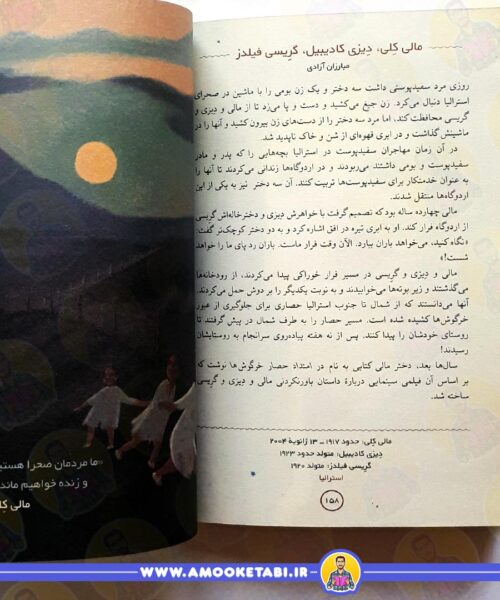 مالی کِلی، دِیزی کادیبیل، گرِیسی فیلدز
مبارزان آزادی
روزی مرد سفیدپوستی داشت سه دختر و یک زن بومی را با ماشین در صحرای
استرالیا دنبال می‌کرد. زن جیغ می‌کشید و دست و پا می‌زد تا از مالی و دیزی و
گریسی محافظت کند، اما مرد سه دختر را از دست‌های زن بیرون کشید و آنها را در
ماشینش گذاشت و در ابری قهوه‌ای از شن و خاک ناپدید شد.
در آن زمان مهاجران سفیدپوست در استرالیا بچه‌هایی را که پدر و مادر
سفیدپوست و بومی داشتند می‌ربودند و در اردوگاه‌ها زندانی می‌کردند تا آنها را
به عنوان خدمتکار برای سفیدپوست‌ها تربیت کنند. آن سه دختر نیز به یکی از این
اردوگاه‌ها منتقل شدند.
مالی چهارده ساله بود که تصمیم گرفت با خواهرش دِیزی و دخترخاله‌اش گریسی
از اردوگاه فرار کند. او به ابری تیره در افق اشاره کرد و به دو دختر کوچک‌تر گفت:
«نگاه کنید، می‌خواهد باران ببارد. الآن وقت فرار ماست. باران رد پای ما را خواهد
شست!»
مالی و دِیزی و گریسی در مسیر فرار خوراکی پیدا می‌کردند، از رودخانه‌ها
می‌گذشتند و زیر بوته‌ها می‌خوابیدند و به نوبت یکدیگر را بر دوش حمل می‌کردند.
آنها می‌دانستند که از شمال تا جنوب استرالیا حصاری برای جلوگیری از عبور
خرگوش‌ها کشیده شده است. مسیر حصار را به طرف شمال در پیش گرفتند تا
روستای خودشان را پیدا کنند. پس از نه هفته پیاده‌روی سرانجام به روستایشان
رسیدند!
سال‌ها بعد، دختر مالی کتابی به نام در امتداد حصار خرگوش‌ها نوشت که
بر اساس آن فیلمی سینمایی دربارهٔ داستان باورنکردنی مالی و دیزی و گریسی
ساخته شد.
مالی کِلی: حدود ۱۹۱۷ – ۱۳ ژانویهٔ ۲۰۰۴
دِیزی کادیبیل: متولد حدود ۱۹۲۳
گرِیسی فیلدز: متولد ۱۹۲۰
استرالیا
۱۵۸
«ما مردمان صحرا هستیم
و زنده خواهیم ماند
مالی کِ
WWW.AMOOKETABI.IR